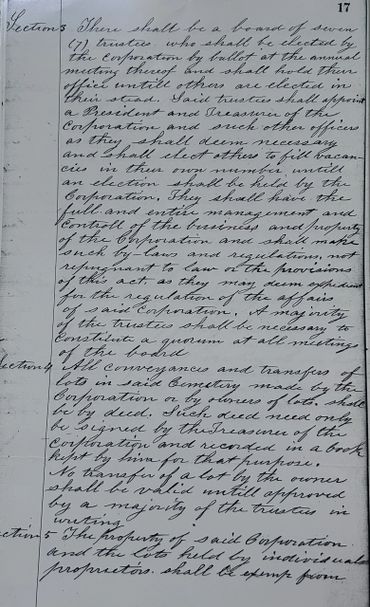 17
Section 3 There shall be a board of seven
(7) trusties, who shall be elected by
the Corporation by ballot at the annual
meeting thereof and shall hold their
office untill others are elected in
their stead. Said trusties shall appoint
a President and Treasurer of the
Corporation and such other officers
as they shall deem necessary
and shall elect others to fill vacan-
cies in their own number untill
an election shall be held by the
Corporation. They shall have the
full and entire management and
controll of the business and property
of the Corporation and shall make
such by-laws and regulations, not
repugnant to law or the provisions
of this act, as they may deem expedient
for the regulation of the affairs
of said Corporation. A majority
of the trusties shall be necessary to
Constitute a quorum at all meetings
of the board
Section 4 All conveyances and transfers of
lots in said Cemetery made by the
Corporation or by owners of lots. shall
be by deed. Such deed need only
be signed by the Treasurer of the
Corporation and recorded in a book
kept by him for that purpose.
No transfer of a lot by the owner
shall be valid untill approved
by a majority of the trusties in
writing
ection 5 The property of said Corporation
and the lots held by individual
proprietors. shall be exemp from